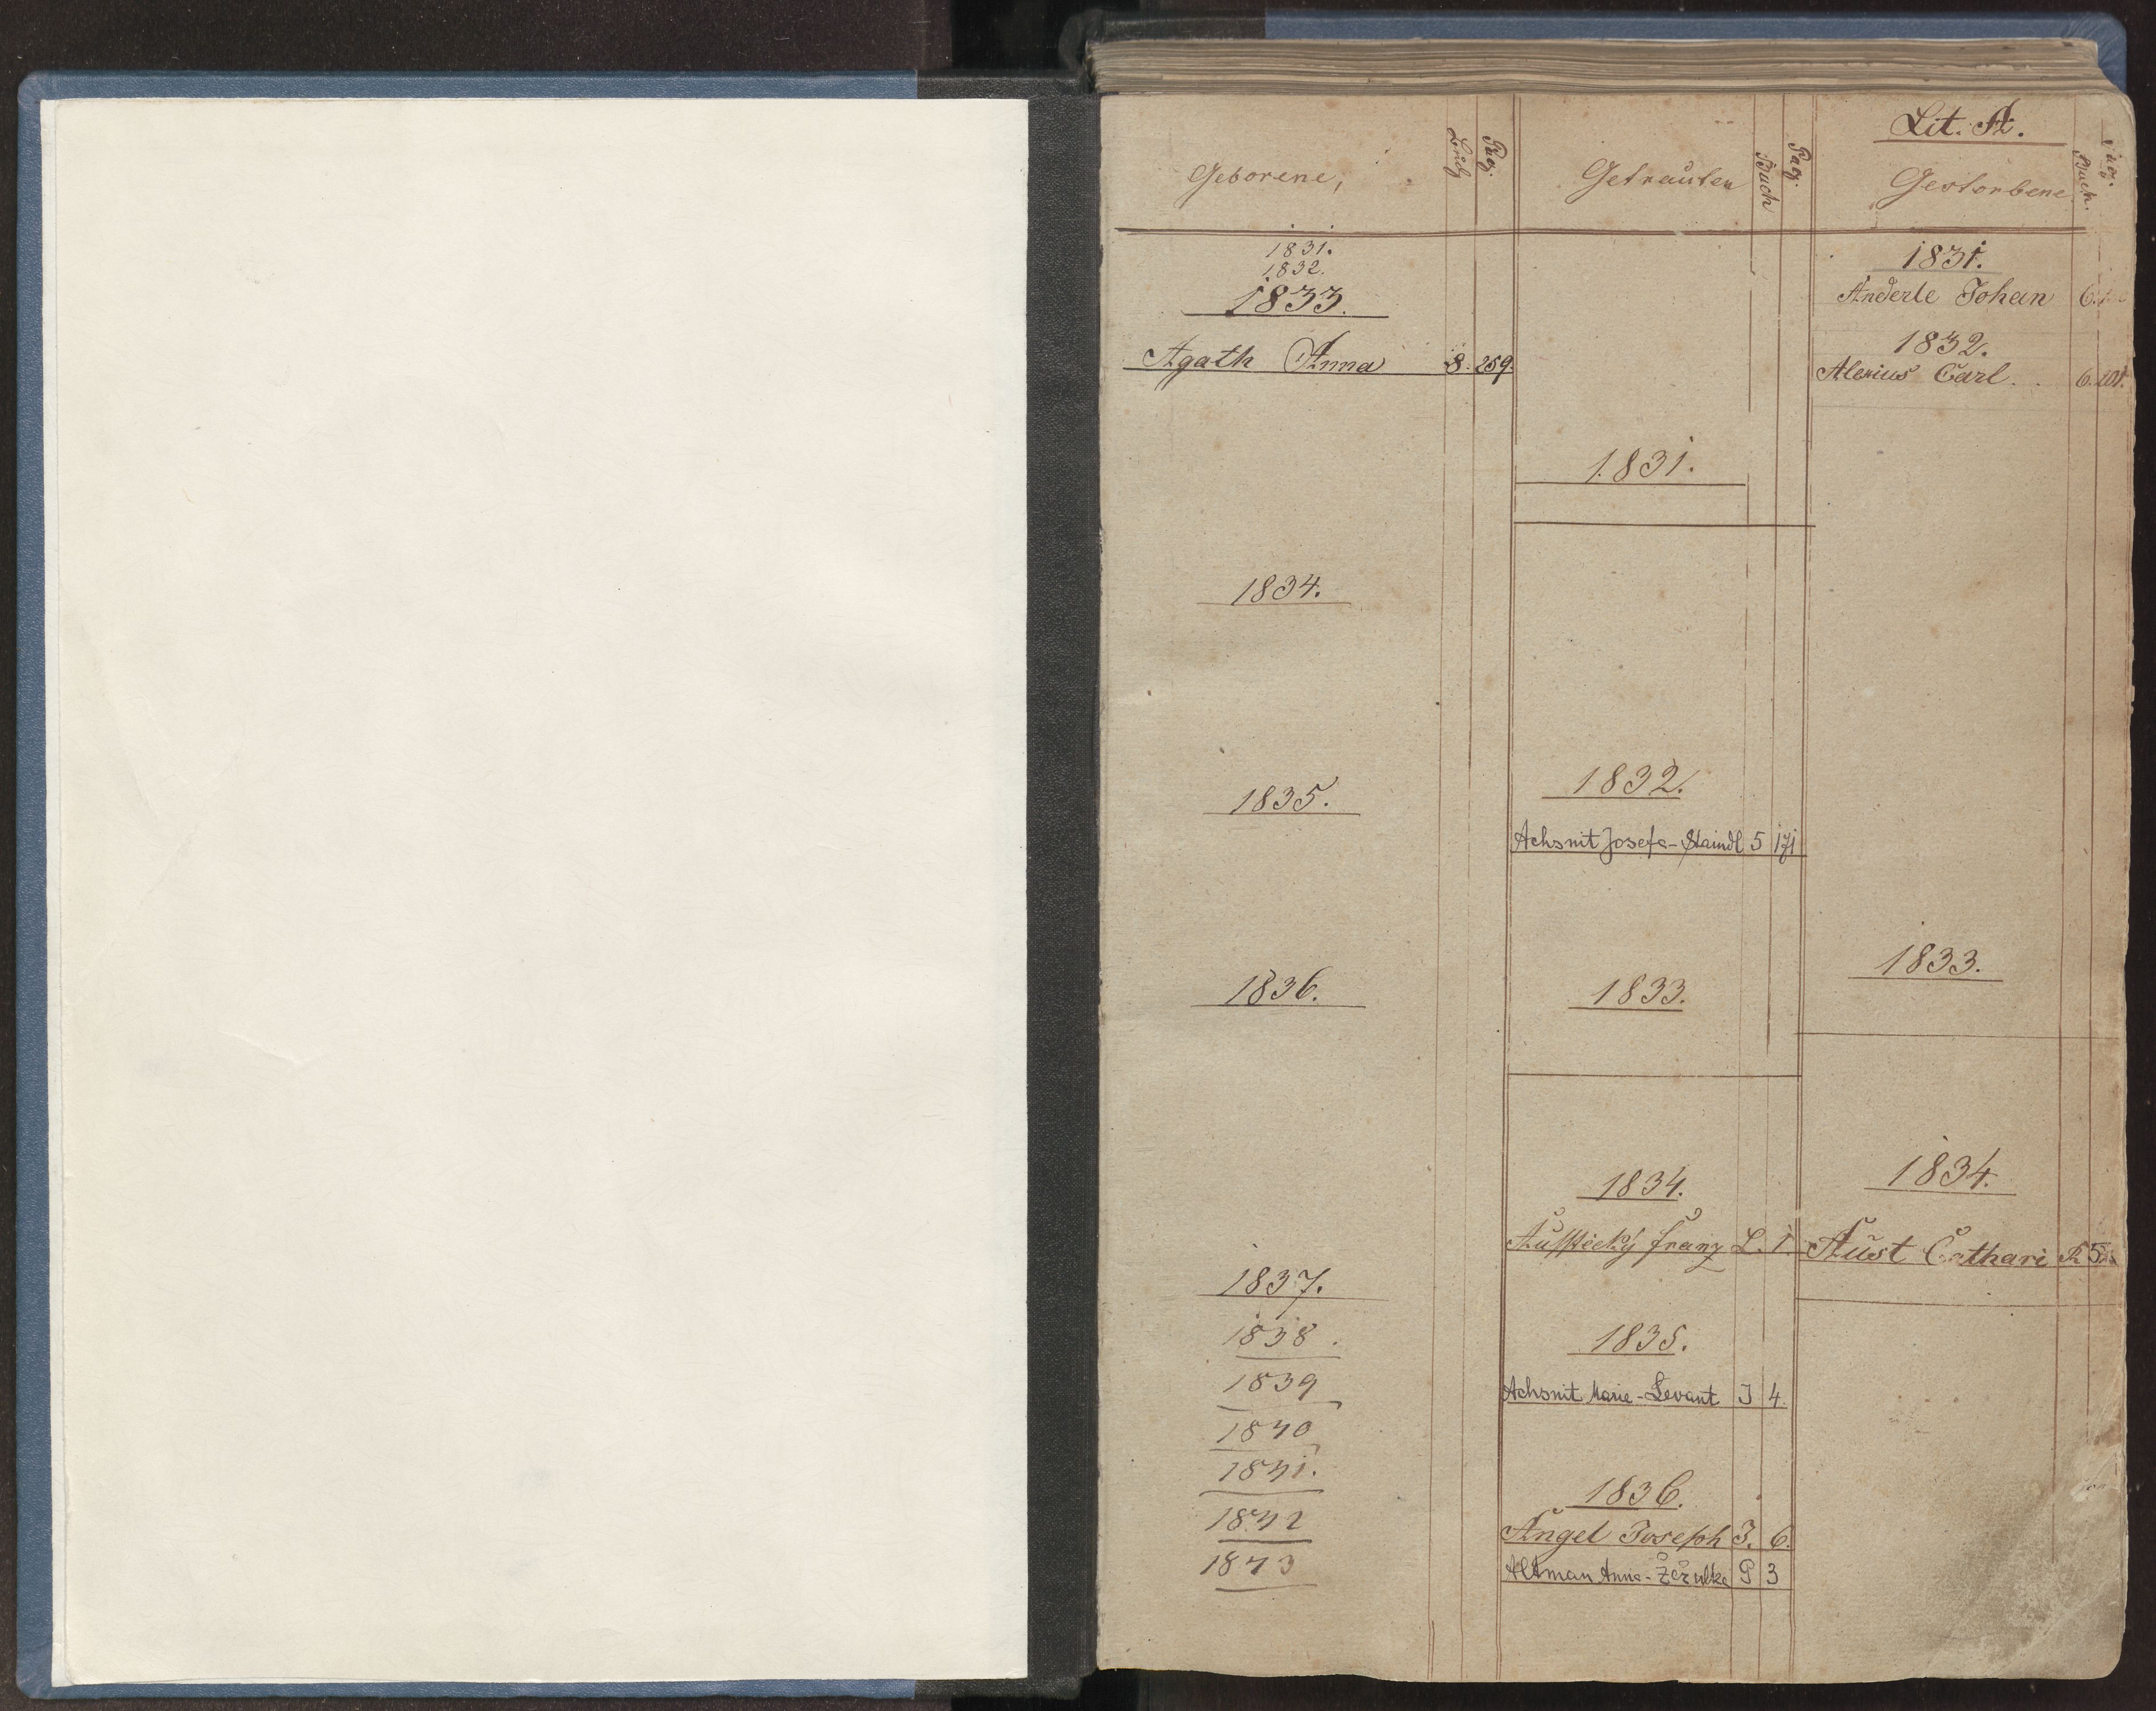 Lit. A.
Geborene,
Buch
Pag.
1831.
1832.
1833.
Agath Anna 8. 259.
1834.
1835.
1836.
1837.
1838.
1839
1840
1841.
1842
1843
Getrauten
Buch
Pag.
1831.
1832.
Achsnit Josefa - Staindl 5 171
1833.
1834.
Franz L. 1.
1835.
Achsnit Marie - Levant J 4.
1836.
Angel Joseph J. 6.
Altman Anna - P 3
Gestorbene
Buch.
Pag.
1831.
Anderle Johan 6.
1832.
Alexius Carl.. 6. 101.
1833.
1834.
Aust Cathari